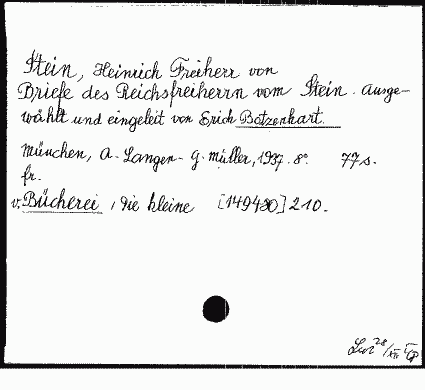 Stein, Heinrich Freiherr von
Briefe des Reichsfreiherrn vom Stein. Ausge-
wählt und eingeleit von Erich Botzenhart.
München, A. Langen - G. Müller, 1937. 8°. 77 s.
fr.
v. Bücherei, Die kleine [149430] 210.